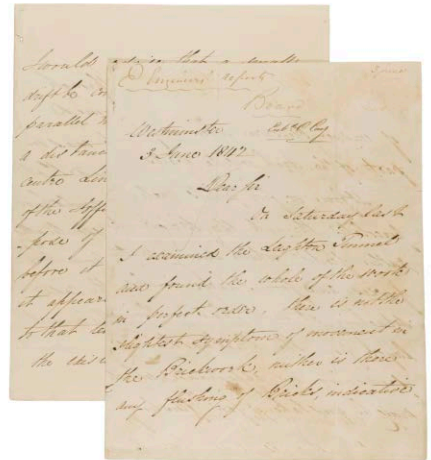 I would
drift to
parallel
a distan
centre Lin
of the App
pose of
before it
it appear
to that
the exis
Engineers' reports
Board
Westminster
3 June 1842
Dear Sir
On Saturday last
I examined the Leighton Tunnel
and found the whole of the work
in perfect order. there is not the
slightest symptom of movement in
the Brickwork, neither is there
any flushing of Bricks, indicative